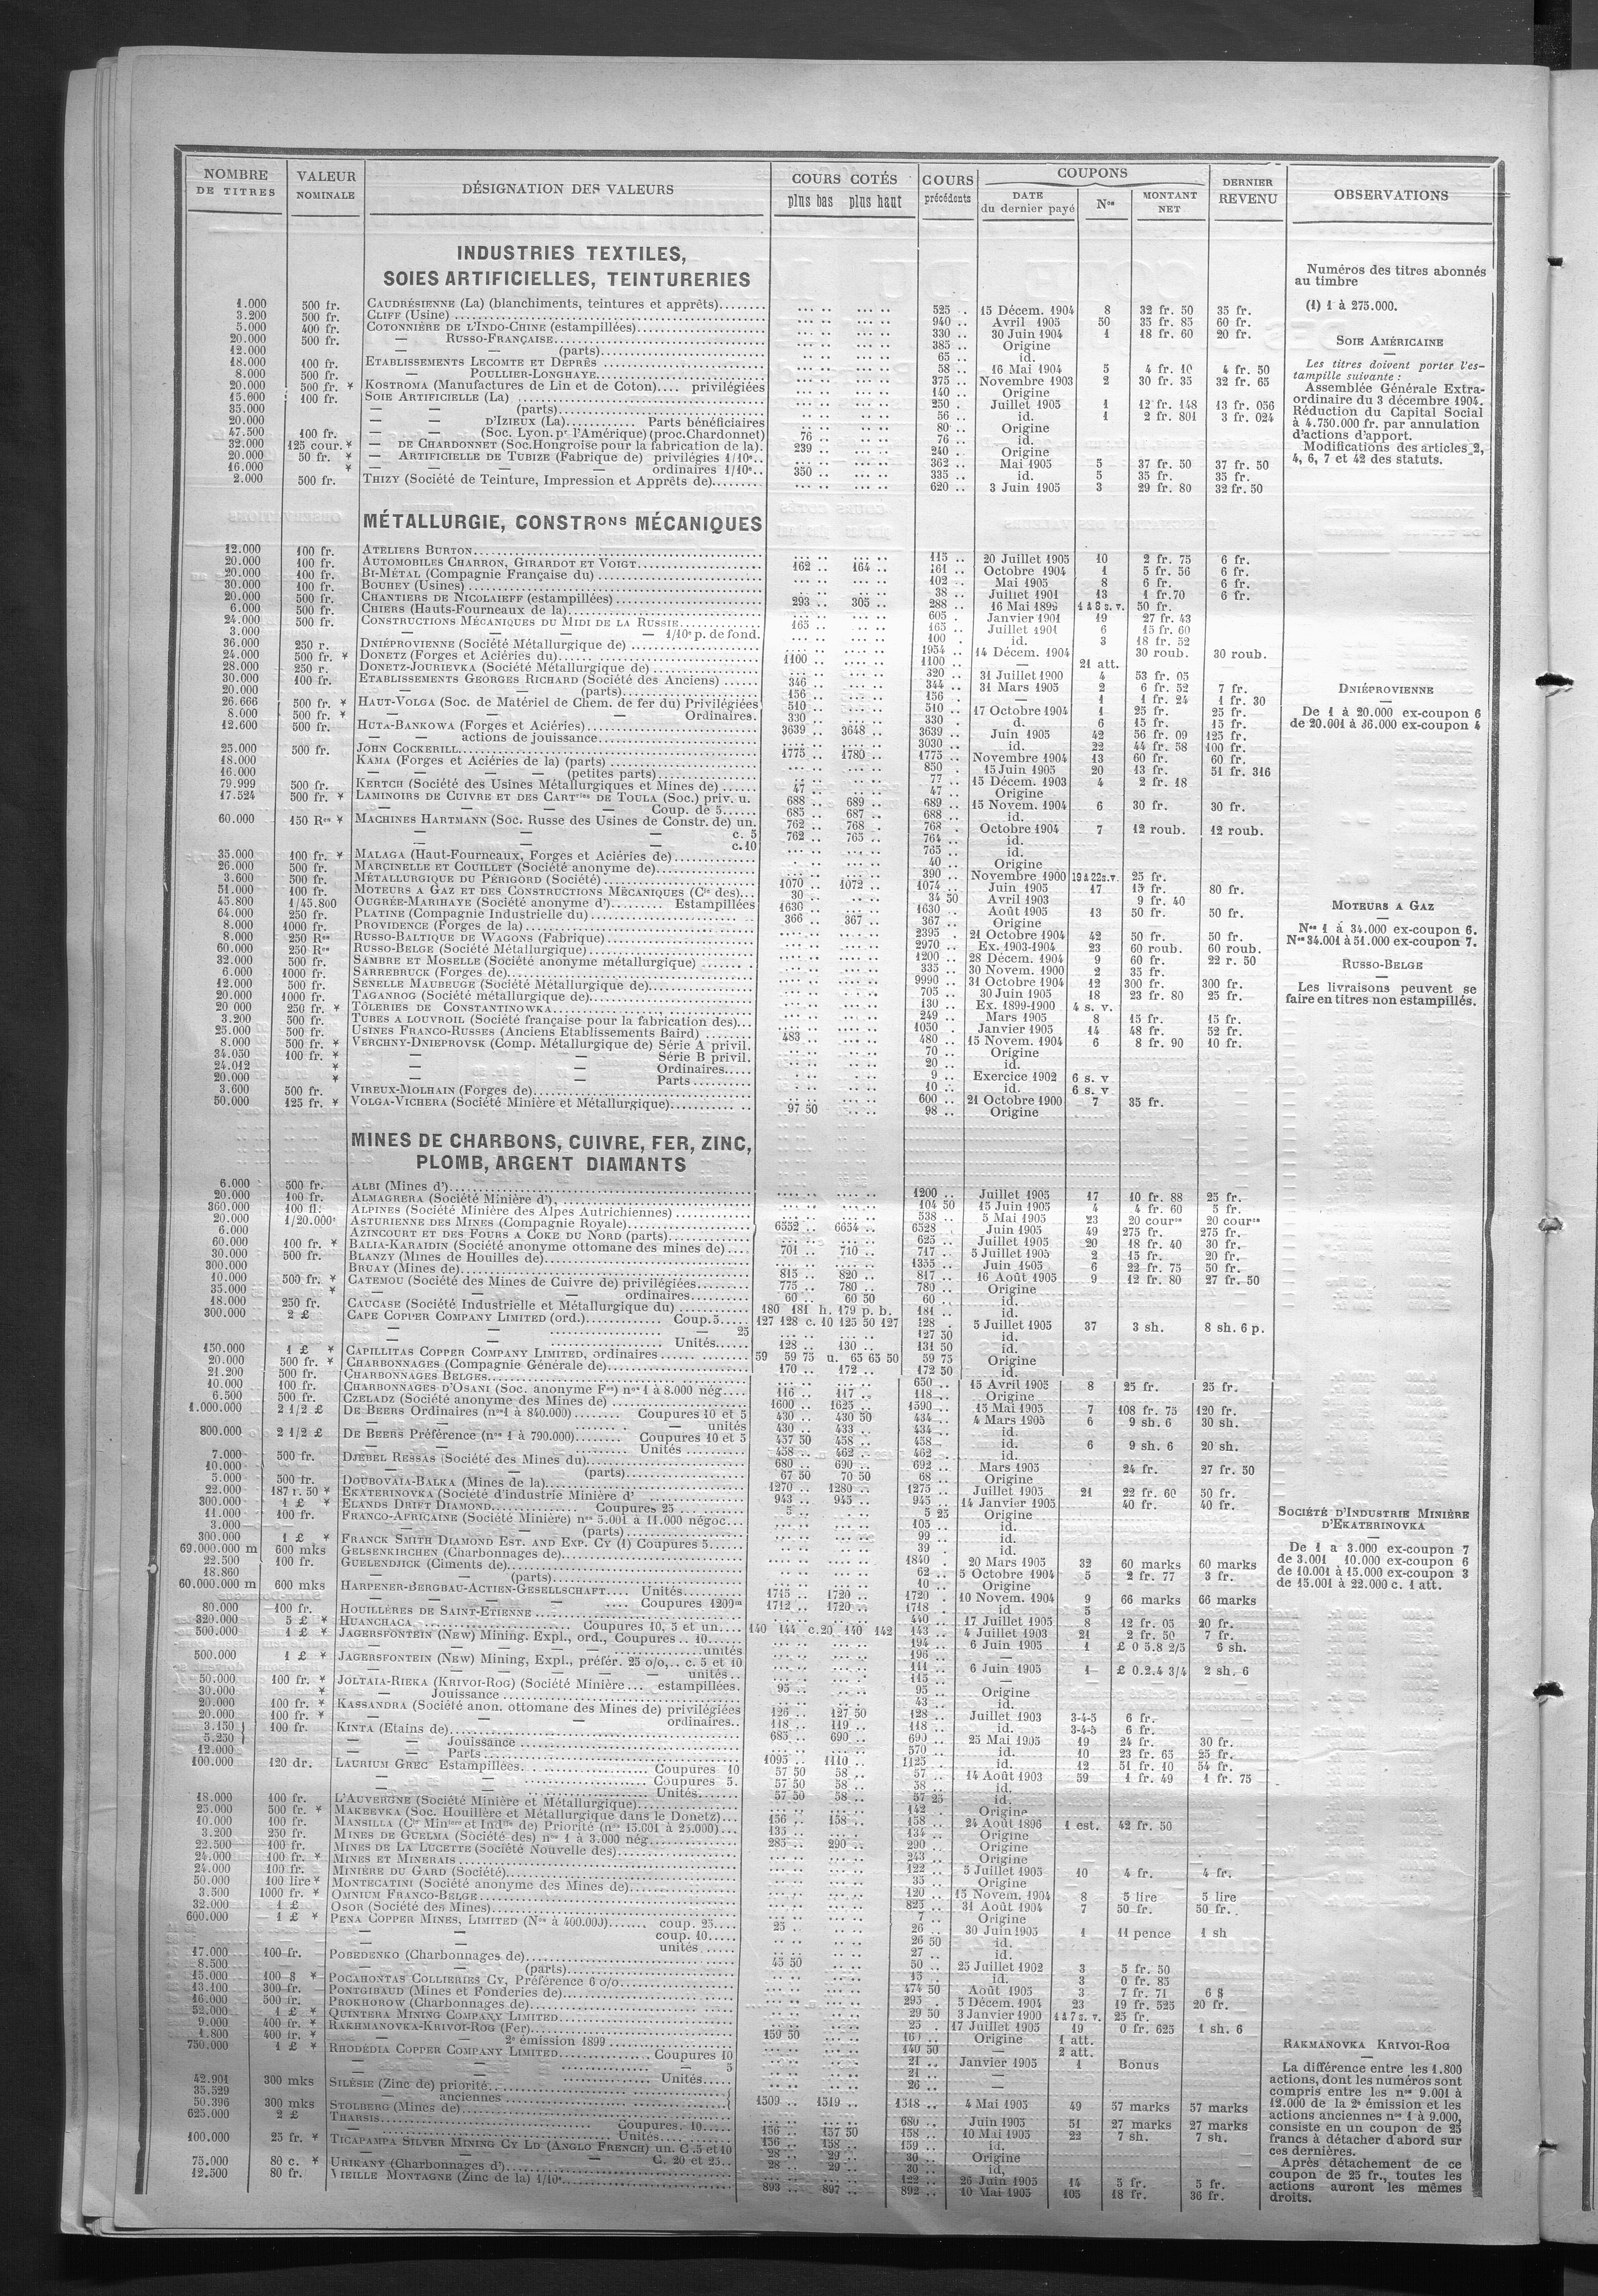 NOMBRE DE TITRES | VALEUR NOMINALE | DÉSIGNATION DES VALEURS | COURS COTÉS plus bas plus haut | COURS précédents | COUPONS DATE du dernier payé | Nos | MONTANT NET | DERNIER REVENU | OBSERVATIONS
INDUSTRIES TEXTILES,
SOIES ARTIFICIELLES, TEINTURERIES
1.000 500 fr. CAUDRÉSIENNE (La) (blanchiments, teintures et apprêts) 525 15 Décem. 1904 8 32 fr. 50 35 fr.
3.200 500 fr. CLIFF (Usine) 940 Avril 1905 50 35 fr. 85 60 fr.
5.000 400 fr. COTONNIÈRE DE L'INDO-CHINE (estampillées) 330 30 Juin 1904 1 18 fr. 60 20 fr.
20.000 500 fr. — RUSSO-FRANÇAISE 385 Origine
12.000 — — (parts) 65 id.
18.000 100 fr. ETABLISSEMENTS LECOMTE ET DEPRÈS 58 16 Mai 1904 5 4 fr. 10 4 fr. 50
8.000 500 fr. — POULLIER-LONGHAYE 375 Novembre 1903 2 30 fr. 35 32 fr. 65
20.000 500 fr. ¥ KOSTROMA (Manufactures de Lin et de Coton) privilégiées 140 Origine
15.800 100 fr. SOIE ARTIFICIELLE (La) 250 Juillet 1905 1 12 fr. 148 13 fr. 056
35.000 — — (parts) 56 id. 1 2 fr. 801 3 fr. 024
20.000 — D'IZIEUX (La) Parts bénéficiaires 80 Origine
47.500 100 fr. — — (Soc. Lyon. pr l'Amérique) (proc. Chardonnet) 76 76 id.
32.000 125 cour. ¥ — DE CHARDONNET (Soc. Hongroise pour la fabrication de la) 239 240 Origine
20.000 50 fr. ¥ — ARTIFICIELLE DE TUBIZE (Fabrique de) privilégies 1/10e 362 Mai 1905 5 37 fr. 50 37 fr. 50
16.000 ¥ — — — — ordinaires 1/10e 350 335 id. 5 35 fr. 35 fr.
2.000 500 fr. THIZY (Société de Teinture, Impression et Apprêts de) 620 3 Juin 1905 3 29 fr. 80 32 fr. 50
Numéros des titres abonnés
au timbre
(1) 1 à 275.000.
SOIE AMÉRICAINE
Les titres doivent porter l'es-
tampille suivante :
Assemblée Générale Extra-
ordinaire du 3 décembre 1904.
Réduction du Capital Social
à 4.750.000 fr. par annulation
d'actions d'apport.
Modifications des articles 2,
4, 6, 7 et 42 des statuts.
MÉTALLURGIE, CONSTRons MÉCANIQUES
12.000 100 fr. ATELIERS BURTON 115 20 Juillet 1905 10 2 fr. 75 6 fr.
20.000 100 fr. AUTOMOBILES CHARRON, GIRARDOT ET VOIGT 162 164 161 Octobre 1904 1 5 fr. 56 6 fr.
20.000 100 fr. BI-MÉTAL (Compagnie Française du) 102 Mai 1905 8 6 fr. 6 fr.
30.000 100 fr. BOUHEY (Usines) 38 Juillet 1901 13 1 fr. 70 6 fr.
20.000 500 fr. CHANTIERS DE NICOLAIEFF (estampillées) 293 305 288 16 Mai 1899 1 à 8 s. v. 50 fr.
6.000 500 fr. CHIERS (Hauts-Fourneaux de la) 605 Janvier 1901 19 27 fr. 43
24.000 500 fr. CONSTRUCTIONS MÉCANIQUES DU MIDI DE LA RUSSIE 165 165 Juillet 1901 6 15 fr. 60
3.000 — — — 1/10e p. de fond. 100 id. 3 18 fr. 52
36.000 250 r. DNIÉPROVIENNE (Société Métallurgique de) 1954 14 Décem. 1904 30 roub. 30 roub.
24.000 500 fr. ¥ DONETZ (Forges et Aciéries du) 1100 1100 — 21 att.
28.000 250 r. DONETZ-JOURIEVKA (Société Métallurgique de) 320 31 Juillet 1900 4 53 fr. 05
30.000 100 fr. ETABLISSEMENTS GEORGES RICHARD (Société des Anciens) 346 344 31 Mars 1905 2 6 fr. 52 7 fr.
20.000 — — (parts) 156 156 1 1 fr. 24 1 fr. 30
26.666 500 fr. ¥ HAUT-VOLGA (Soc. de Matériel de Chem. de fer du) Privilégiées 510 510 17 Octobre 1904 1 25 fr. 25 fr.
8.000 500 fr. ¥ — — — Ordinaires. 330 330 d. 6 15 fr. 15 fr.
12.600 500 fr. HUTA-BANKOWA (Forges et Aciéries) 3639 3648 3639 Juin 1905 42 56 fr. 09 125 fr.
— — actions de jouissance 3030 id. 22 44 fr. 58 100 fr.
25.000 500 fr. JOHN COCKERILL 1775 1780 1775 Novembre 1904 13 60 fr. 60 fr.
18.000 KAMA (Forges et Aciéries de la) (parts) 850 15 Juin 1905 20 13 fr. 51 fr. 316
16.000 — — — — (petites parts) 77 15 Décem. 1903 4 2 fr. 18
79.999 500 fr. KERTCH (Société des Usines Métallurgiques et Mines de) 47 47 Origine
17.524 500 fr. ¥ LAMINOIRS DE CUIVRE ET DES CARTries DE TOULA (Soc.) priv. u. 688 689 689 15 Novem. 1904 6 30 fr. 30 fr.
— — — Coup. de 5 685 687 688 id.
60.000 150 Res ¥ MACHINES HARTMANN (Soc. Russe des Usines de Constr. de) un. 762 768 768 Octobre 1904 7 12 roub. 12 roub.
— — — c. 5 762 765 764 id.
— — — c. 10 765 id.
35.000 100 fr. ¥ MALAGA (Haut-Fourneaux, Forges et Aciéries de) 40 Origine
26.000 500 fr. MARCINELLE ET COUILLET (Société anonyme de) 390 Novembre 1900 19 à 22 s. v. 25 fr.
3.600 500 fr. MÉTALLURGIQUE DU PÉRIGORD (Société) 1070 1072 1074 Juin 1905 17 15 fr. 80 fr.
51.000 100 fr. MOTEURS A GAZ ET DES CONSTRUCTIONS MÉCANIQUES (Cie des) 30 34 50 Avril 1903 9 fr. 40
45.800 1/45.800 OUGRÉE-MARIHAYE (Société anonyme d') Estampillées 1630 1630 Août 1905 13 50 fr. 50 fr.
64.000 250 fr. PLATINE (Compagnie Industrielle du) 366 367 367 Origine
8.000 1000 fr. PROVIDENCE (Forges de la) 2395 21 Octobre 1904 42 50 fr. 50 fr.
8.000 250 Res RUSSO-BALTIQUE DE WAGONS (Fabrique) 2970 Ex. 1903-1904 23 60 roub. 60 roub.
60.000 250 Res RUSSO-BELGE (Société Métallurgique) 1200 28 Décem. 1904 9 60 fr. 22 r. 50
32.000 500 fr. SAMBRE ET MOSELLE (Société anonyme métallurgique) 335 30 Novem. 1900 2 35 fr.
6.000 1000 fr. SARREBRUCK (Forges de) 9990 31 Octobre 1904 12 300 fr. 300 fr.
12.000 500 fr. SENELLE MAUBEUGE (Société Métallurgique de) 705 30 Juin 1905 18 23 fr. 80 25 fr.
20.000 1000 fr. TAGANROG (Société métallurgique de) 130 Ex. 1899-1900 4 s. v.
20 000 250 fr. ¥ TÔLERIES DE CONSTANTINOWKA 249 Mars 1905 8 15 fr. 15 fr.
3.200 500 fr. TUBES A LOUVROIL (Société française pour la fabrication des) 1050 Janvier 1905 14 48 fr. 52 fr.
25.000 500 fr. USINES FRANCO-RUSSES (Anciens Etablissements Baird) 483 480 15 Novem. 1904 6 8 fr. 90 10 fr.
8.000 500 fr. ¥ VERCHNY-DNIEPROVSK (Comp. Métallurgique de) Série A privil. 70 Origine
34.050 100 fr. ¥ — — Série B privil. 20 id.
24.012 ¥ — — Ordinaires 9 Exercice 1902 6 s. v
20.000 ¥ — — Parts 10 id. 6 s. v
3.600 500 fr. VIREUX-MOLHAIN (Forges de) 600 21 Octobre 1900 7 35 fr.
50.000 125 fr. ¥ VOLGA-VICHERA (Société Minière et Métallurgique) 97 50 98 Origine
DNIÉPROVIENNE
De 1 à 20.000 ex-coupon 6
de 20.001 à 36.000 ex-coupon 4
MOTEURS A GAZ
Nos 1 à 34.000 ex-coupon 6.
Nos 34.001 à 51.000 ex-coupon 7.
RUSSO-BELGE
Les livraisons peuvent se
faire en titres non estampillés.
MINES DE CHARBONS, CUIVRE, FER, ZINC,
PLOMB, ARGENT DIAMANTS
6.000 500 fr. ALBI (Mines d') 1200 Juillet 1905 17 10 fr. 88 25 fr.
20.000 100 fr. ALMAGRERA (Société Minière d') 104 50 15 Juin 1905 4 4 fr. 60 5 fr.
360.000 100 fl. ALPINES (Société Minière des Alpes Autrichiennes) 538 5 Mai 1905 23 20 cours 20 cours
20.000 1/20.000e ASTURIENNE DES MINES (Compagnie Royale) 6552 6654 6528 Juin 1905 49 275 fr. 275 fr.
6.000 AZINCOURT ET DES FOURS A COKE DU NORD (parts) 625 Juillet 1905 20 18 fr. 40 30 fr.
60.000 100 fr. ¥ BALIA-KARAIDIN (Société anonyme ottomane des mines de) 701 710 717 5 Juillet 1905 2 15 fr. 20 fr.
30.000 500 fr. BLANZY (Mines de Houilles de) 1355 Juin 1905 6 22 fr. 75 50 fr.
300.000 BRUAY (Mines de) 815 820 817 16 Août 1905 9 12 fr. 80 27 fr. 50
10.000 500 fr. ¥ CATEMOU (Société des Mines de Cuivre de) privilégiées 775 780 780 Origine
35.000 ¥ — — ordinaires 60 60 50 60 id.
18.000 250 fr. CAUCASE (Société Industrielle et Métallurgique du) 180 181 h. 179 p. b. 181 id.
300.000 2 £ CAPE COPPER COMPANY LIMITED (ord.) Coup. 5 127 128 c. 10 125 50 127 128 5 Juillet 1905 37 3 sh. 8 sh. 6 p.
— — — 25 127 50 id.
— — Unités 128 130 131 50 id.
150.000 1 £ ¥ CAPILLITAS COPPER COMPANY LIMITED, ordinaires 59 59 75 u. 65 65 50 59 75 Origine
20.000 500 fr. ¥ CHARBONNAGES (Compagnie Générale de) 170 172 172 50 id.
21.200 500 fr. CHARBONNAGES BELGES 650 15 Avril 1905 8 25 fr. 25 fr.
10.000 100 fr. CHARBONNAGES D'OSANI (Soc. anonyme Fse) nos 1 à 8.000 nég. 116 117 118 Origine
6.500 500 fr. CZELADZ (Société anonyme des Mines de) 1600 1625 1590 15 Mai 1905 7 108 fr. 75 120 fr.
1.000.000 2 1/2 £ DE BEERS Ordinaires (nos 1 à 840.000) Coupures 10 et 5 430 430 50 434 4 Mars 1905 6 9 sh. 6 30 sh.
— — — unités 430 433 434 id.
800.000 2 1/2 £ DE BEERS Préférence (nos 1 à 790.000) Coupures 10 et 5 457 50 458 458 id. 6 9 sh. 6 20 sh.
— — Unités 458 462 462 id.
7.000 500 fr. DJEBEL RESSAS (Société des Mines du) 680 690 692 Mars 1905 24 fr. 27 fr. 50
10.000 — — (parts) 67 50 70 50 68 Origine
5.000 500 fr. DOUBOVAIA-BALKA (Mines de la) 1270 1280 1275 Juillet 1905 21 22 fr. 60 50 fr.
22.000 187 r. 50 ¥ EKATERINOVKA (Société d'industrie Minière d' 943 945 945 14 Janvier 1905 40 fr. 40 fr.
300.000 1 £ ¥ ELANDS DRIFT DIAMOND Coupures 25 5 5 25 Origine
11.000 100 fr. FRANCO-AFRICAINE (Société Minière) nos 5.001 à 11.000 négoc. 105 id.
3.000 — — (parts) 99 id.
300.000 1 £ ¥ FRANCK SMITH DIAMOND EST. AND EXP. CY (1) Coupures 5 39 id.
69.000.000 m 600 mks GELSENKIRCHEN (Charbonnages de) 1840 20 Mars 1905 32 60 marks 60 marks
22.500 100 fr. GUELENDJICK (Ciments de) 62 5 Octobre 1904 5 2 fr. 77 3 fr.
18.860 — — (parts) 10 Origine
60.000.000 m 600 mks HARPENER-BERGBAU-ACTIEN-GESELLSCHAFT Unités 1715 1720 1720 10 Novem. 1904 9 66 marks 66 marks
— — — Coupures 1200m 1712 1720 1718 id 5
80.000 100 fr. HOUILLÈRES DE SAINT-ETIENNE 440 17 Juillet 1905 8 12 fr. 05 20 fr.
320.000 5 £ ¥ HUANCHACA Coupures 10, 5 et un. 140 144 c. 20 140 142 143 4 Juillet 1903 21 2 fr. 50 7 fr.
500.000 1 £ ¥ JAGERSFONTEIN (NEW) Mining. Expl., ord., Coupures 10 194 6 Juin 1905 1 £ 0 5.8 2/5 6 sh.
— — — unités 196 —
500.000 1 £ ¥ JAGERSFONTEIN (NEW) Mining, Expl., préfér. 25 o/o, c. 5 et 10 111 6 Juin 1905 1 £ 0.2.4 3/4 2 sh. 6
— — — unités 115 —
50.000 100 fr. ¥ JOLTAIA-RIEKA (KRIVOI-ROG) (Société Minière estampillées. 95 95 Origine
30.000 ¥ — Jouissance 43 id.
20.000 100 fr. ¥ KASSANDRA (Société anon. ottomane des Mines de) privilégiées 126 127 50 128 Juillet 1903 3-4-5 6 fr.
20.000 100 fr. ¥ — — ordinaires 118 119 118 id. 3-4-5 6 fr.
3.150 100 fr. KINTA (Etains de) 685 690 690 25 Mai 1905 19 24 fr. 30 fr.
5.250 — — Jouissance 570 id. 10 23 fr. 65 25 fr.
12.000 — — Parts 1095 1110 1125 id. 12 51 fr. 10 54 fr.
100.000 120 dr. LAURIUM GREC Estampillées Coupures 10 57 50 58 57 14 Août 1903 59 1 fr. 49 1 fr. 75
— — Coupures 5. 57 50 58 58 id.
— — Unités 57 50 58 57 25 id.
18.000 100 fr. L'AUVERGNE (Société Minière et Métallurgique) 142 Origine
25.000 500 fr. ¥ MAKEEVKA (Soc. Houillère et Métallurgique dans le Donetz) 156 158 158 24 Août 1896 1 est. 42 fr. 50
10.000 100 fr. MANSILLA (Cie Minière et Indlle de) Priorité (nos 15.001 à 25.000) 135 134 Origine
3.200 250 fr. MINES DE GUELMA (Société des) nos 1 à 3.000 nég. 285 290 290 Origine
22.500 100 fr. MINES DE LA LUCETTE (Société Nouvelle des) 243 Origine
24.000 100 fr. ¥ MINES ET MINERAIS 122 5 Juillet 1905 10 4 fr. 4 fr.
24.000 100 fr. MINIÈRE DU GARD (Société) 35 Origine
50.000 100 lire ¥ MONTECATINI (Société anonyme des Mines de) 120 15 Novem. 1904 8 5 lire 5 lire
3.500 1000 fr. ¥ OMNIUM FRANCO-BELGE 825 31 Août 1904 7 50 fr. 50 fr.
32.000 1 £ OSOR (Société des Mines) 7 Origine
600.000 1 £ ¥ PENA COPPER MINES, LIMITED (Nos à 400.000) coup. 25 25 26 30 Juin 1905 1 11 pence 1 sh
— — coup. 10 26 50 id.
— — unités 27 id.
17.000 100 fr. POBEDENKO (Charbonnages de) 45 50 50 25 Juillet 1902 3 5 fr. 50
8.500 — — (parts) 15 id. 3 0 fr. 85
15.000 100 $ ¥ POCAHONTAS COLLIERIES CY, Préférence 6 o/o 474 50 Août 1905 3 7 fr. 71 6 $
13.100 300 fr. PONTGIBAUD (Mines et Fonderies de) 295 5 Décem. 1904 23 19 fr. 525 20 fr.
16.000 500 fr. PROKHOROW (Charbonnages de) 29 50 3 Janvier 1900 1 à 7 s. v. 25 fr.
52.000 1 £ ¥ QUINTERA MINING COMPANY LIMITED 25 17 Juillet 1905 19 0 fr. 625 1 sh. 6
9.000 400 fr. ¥ RAKHMANOVKA-KRIVOI-ROG (Fer) 159 50 Origine 1 att.
1.800 400 fr. ¥ — — 2e émission 1899 140 50 — 2 att.
750.000 1 £ ¥ RHODÉDIA COPPER COMPANY LIMITED Coupures 10 21 Janvier 1905 1 Bonus
— — — 5 21 —
— — Unités 26 —
42.901 300 mks SILÉSIE (Zinc de) priorité
35.529 — anciennes 1509 1519 1518 4 Mai 1905 49 57 marks 57 marks
50.396 300 mks STOLBERG (Mines de) 680 Juin 1905 51 27 marks 27 marks
625.000 2 £ THARSIS Coupures. 10 156 157 50 158 10 Mai 1905 22 7 sh. 7 sh.
— Unités 156 158 159 id.
100.000 25 fr. ¥ TICAPAMPA SILVER MINING CY LD (ANGLO FRENCH) un. C. 5 et 10 28 29 30 Origine
— — — C. 20 et 25 28 29 30 id.
75.000 80 c. ¥ URIKANY (Charbonnages d') 122 26 Juin 1905 14 5 fr. 5 fr.
12.500 80 fr. VIEILLE MONTAGNE (Zinc de la) 1/10e 893 897 892 10 Mai 1905 105 18 fr. 36 fr.
SOCIÉTÉ D'INDUSTRIE MINIÈRE
D'EKATERINOVKA
De 1 a 3.000 ex-coupon 7
de 3.001 10.000 ex-coupon 6
de 10.001 à 15.000 ex-coupon 3
de 15.001 à 22.000 c. 1 att.
RAKMANOVKA KRIVOI-ROG
La différence entre les 1.800
actions, dont les numéros sont
compris entre les nos 9.001 à
12.000 de la 2e émission et les
actions anciennes nos 1 à 9.000,
consiste en un coupon de 25
francs à détacher d'abord sur
ces dernières.
Après détachement de ce
coupon de 25 fr., toutes les
actions auront les mêmes
droits.